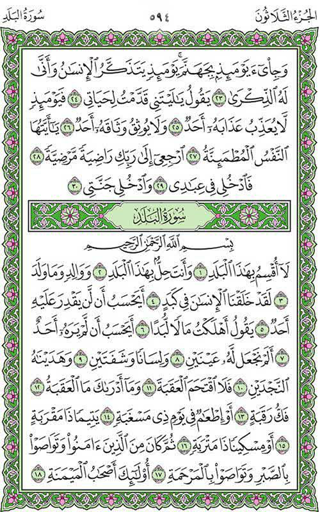 الجزء الثلاثون ٥٩٤ سورة البلد
وَجِاْىٓءَ يَوْمَئِذٍۭ بِجَهَنَّمَ ۚ يَوْمَئِذٍ يَتَذَكَّرُ ٱلْإِنسَٰنُ وَأَنَّىٰ
لَهُ ٱلذِّكْرَىٰ ٢٣ يَقُولُ يَٰلَيْتَنِى قَدَّمْتُ لِحَيَاتِى ٢٤ فَيَوْمَئِذٍ
لَّا يُعَذِّبُ عَذَابَهُۥٓ أَحَدٌ ٢٥ وَلَا يُوثِقُ وَثَاقَهُۥٓ أَحَدٌ ٢٦ يَٰٓأَيَّتُهَا
ٱلنَّفْسُ ٱلْمُطْمَئِنَّةُ ٢٧ ٱرْجِعِىٓ إِلَىٰ رَبِّكِ رَاضِيَةً مَّرْضِيَّةً ٢٨
فَٱدْخُلِى فِى عِبَٰدِى ٢٩ وَٱدْخُلِى جَنَّتِى ٣٠
سورة البلد
بِسْمِ ٱللَّهِ ٱلرَّحْمَٰنِ ٱلرَّحِيمِ
لَآ أُقْسِمُ بِهَٰذَا ٱلْبَلَدِ ١ وَأَنتَ حِلٌّۢ بِهَٰذَا ٱلْبَلَدِ ٢ وَوَالِدٍ وَمَا وَلَدَ
٣ لَقَدْ خَلَقْنَا ٱلْإِنسَٰنَ فِى كَبَدٍ ٤ أَيَحْسَبُ أَن لَّن يَقْدِرَ عَلَيْهِ
أَحَدٌ ٥ يَقُولُ أَهْلَكْتُ مَالًا لُّبَدًا ٦ أَيَحْسَبُ أَن لَّمْ يَرَهُۥٓ أَحَدٌ
٧ أَلَمْ نَجْعَل لَّهُۥ عَيْنَيْنِ ٨ وَلِسَانًا وَشَفَتَيْنِ ٩ وَهَدَيْنَٰهُ
ٱلنَّجْدَيْنِ ١٠ فَلَا ٱقْتَحَمَ ٱلْعَقَبَةَ ١١ وَمَآ أَدْرَىٰكَ مَا ٱلْعَقَبَةُ ١٢
فَكُّ رَقَبَةٍ ١٣ أَوْ إِطْعَٰمٌ فِى يَوْمٍ ذِى مَسْغَبَةٍ ١٤ يَتِيمًا ذَا مَقْرَبَةٍ
١٥ أَوْ مِسْكِينًا ذَا مَتْرَبَةٍ ١٦ ثُمَّ كَانَ مِنَ ٱلَّذِينَ ءَامَنُوا۟ وَتَوَاصَوْا۟
بِٱلصَّبْرِ وَتَوَاصَوْا۟ بِٱلْمَرْحَمَةِ ١٧ أُو۟لَٰٓئِكَ أَصْحَٰبُ ٱلْمَيْمَنَةِ ١٨